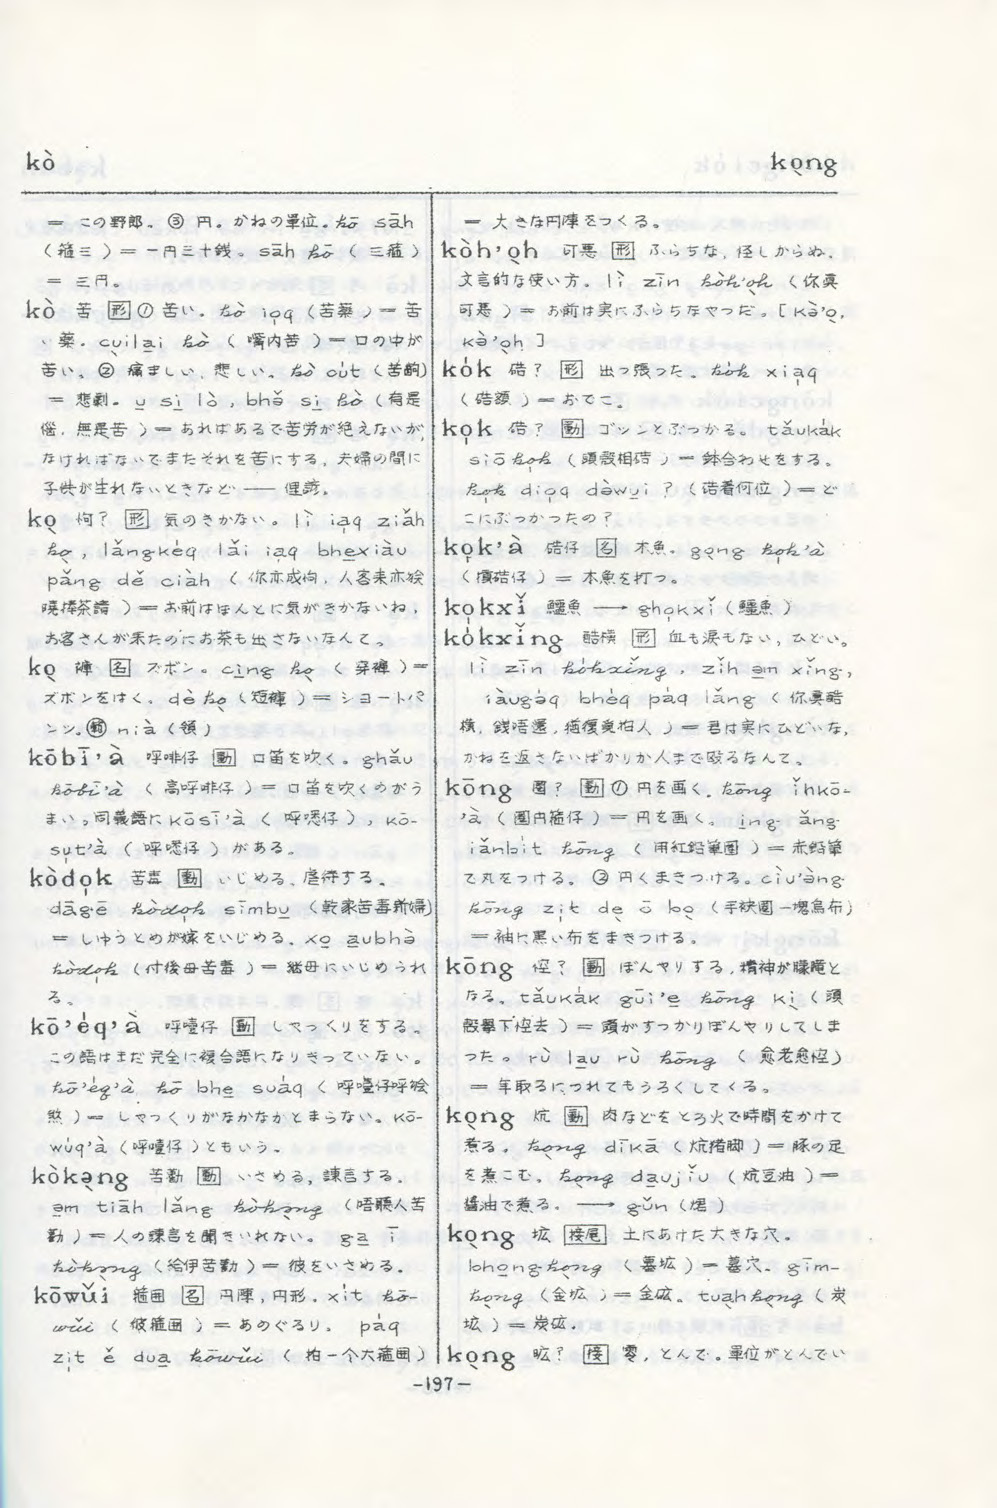 kò
ko̤ng
= この野郎。③ 円。かねの単位。kō sāh
(箍三)= 一円三十銭。sāh kō (三箍)
= 三円。
kò 苦 形 ① 苦い。kò io̤q (苦薬)= 苦
い薬。cùilai kò (嘴内苦)= 口の中が
苦い。② 痛ましい, 悲しい。kò cu̍t (苦齣)
= 悲劇。u si lò, bhǒ si kò (有是
惱, 無是苦)= あればあるで苦労が絶えないが,
なければないでまたそれを苦にする, 夫婦の間に
子供が生れないときなど── 俚諺。
ko̤ 怐? 形 気のきかない。lì iaq ziǎh
ko̤, lǎngkéq lǎi iaq bhexiàu
pǎng dě ciàh (你亦成怐, 人客来亦𣍐
曉捧茶請)= お前はほんとに気がきかないね,
お客さんが来たのにお茶も出さないなんて。
ko̤ 褲 名 ズボン。cing ko̤ (穿褲)=
ズボンをはく。dè ko̤ (短褲)= ショートパ
ンツ。箱 nià (領)
kōbī'à 呼啡仔 動 口笛を吹く。ghǎu
kōbī'à (高呼啡仔)= 口笛を吹くのがう
まい。同義語に kōsī'à (呼嘘仔), kō-
su̍t'à (呼嘘仔)がある。
kòdo̍k 苦毒 動 いじめる, 虐待する。
dāgē kòdo̍k sīmbu (乾家苦毒新婦)
= しゅうとめが嫁をいじめる。xo̤ aubhà
kòdo̍k (付後母苦毒)= 継母にいじめられ
る。
kō'éq'à 呼噎仔 動 しゃっくりをする。
この語はまだ完全に複合語になりきっていない。
kō'éq'à kō bhe suáq (呼噎仔呼𣍐
煞)= しゃっくりがなかなかとまらない。kō-
wúq'à (呼噎仔)ともいう。
kòkǝ̤ng 苦勸 動 いさめる, 諫言する。
ǝm tiāh lǎng kòkǝ̤ng (唔聽人苦
勸)= 人の諫言を聞きいれない。ga ī
kòkǝ̤ng (給伊苦勸)= 彼をいさめる。
kōwǔi 箍囲 名 円陣, 円形。xit kō-
wǔi (彼箍囲)= あのぐるり。páq
zi̍t ě dua kōwǔi (拍一个大箍囲)
= 大きな円陣をつくる。
kòh'o̤h 可悪 形 ふらちな, 怪しからぬ,
文言的な使い方。lì zīn kòh'o̤h (你真
可悪)= お前は実にふらちなやつだ。[Kà'o̤,
Kà'o̤h]
kók 硞? 形 出っ張った。kók xia̍q
(硞額)= おでこ。
ko̍k 硞? 動 ゴツンとぶつかる。tǎukák
siō ko̍k (頭殻相硞)= 鉢合わせをする。
ko̍k dio̍q dàwui? (硞着何位)= ど
こにぶつかったの?
ko̍k'à 硞仔 名 木魚。go̤ng ko̍k'à
(摃硞仔)= 木魚を打つ。
ko̍kxǐ 鱷魚 ─→ gho̍kxǐ (鱷魚)
kókxǐng 酷横 形 血も涙もない, ひどい。
lì zīn kókxǐng, zǐh ǝm xǐng,
iàugǝ̍q bhéq páq lǎng (你真酷
横, 銭唔還, 猶復覔拍人)= 君は実にひどいな,
かねを返さないばかりか人まで殴るなんて。
kōng 圏? 動 ① 円を画く。kōng ǐhkō-
'à (圏円箍仔)= 円を画く。ing ǎng
iǎnbit kōng (用紅鉛筆圏)= 赤鉛筆
で丸をつける。② 円くまきつける。cìu'àng
kōng zi̍t de̤ ō bo̤ (手䘼圏一塊烏布)
= 袖に黒い布をまきつける。
kōng 悾? 動 ぼんやりする, 精神が朦朧と
なる。tǎukák gūi'e kōng ki̤ (頭
殻擧下悾去)= 頭がすっかりぼんやりしてしま
った。rù lau rù kōng (愈老愈悾)
= 年取るにつれてもうろくしてくる。
ko̤ng 炕 動 肉などをとろ火で時間をかけて
煮る。ko̤ng dīkā (炕猪脚)= 豚の足
を煮こむ。ko̤ng daujǐu (炕豆油)=
醬油で煮る。─→ gǔn (焜)
ko̤ng 壙 接尾 土にあけた大きな穴。
bhong-ko̤ng (墓壙)= 墓穴。gīm-
ko̤ng (金壙)= 金砿。tua̤hko̤ng (炭
壙)= 炭砿。
ko̤ng 曠? 接 零, とんで。単位がとんでい
-197-